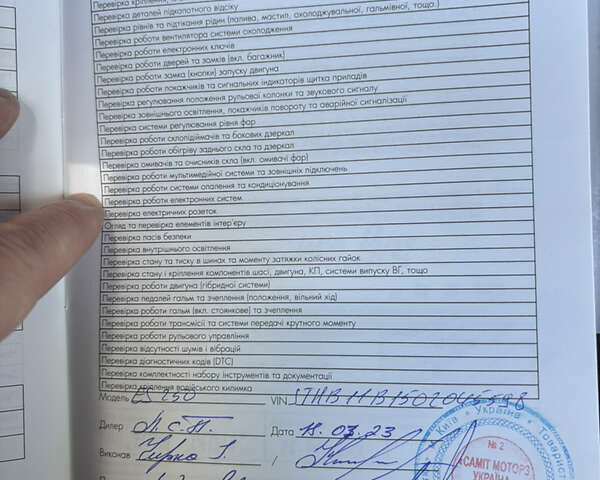 Перевірка деталей підкапотного відсіку
Перевірка рівнів та підтікання рідин (палива, мастил, охолоджувальної, гальмівної, тощо.)
Перевірка роботи вентилятора системи охолодження
Перевірка роботи електронних ключів
Перевірка роботи дверей та замків (вкл. багажник)
Перевірка роботи замка (кнопки) запуску двигуна
Перевірка роботи покажчиків та сигнальних індикаторів щитка приладів
Перевірка регулювання положення рульової колонки та звукового сигналу
Перевірка зовнішнього освітлення, покажчиків повороту та аварійної сигналізації
Перевірка системи регулювання рівня фар
Перевірка роботи склопідіймачів та бокових дзеркал
Перевірка роботи обігріву заднього скла та дзеркал
Перевірка омивачів та очисників скла (вкл. омивачі фар)
Перевірка роботи мультимедійної системи та зовнішніх підключень
Перевірка роботи системи опалення та кондиціонування
Перевірка роботи електронних систем
Перевірка електричних розеток
Огляд та перевірка елементів інтер'єру
Перевірка пасів безпеки
Перевірка внутрішнього освітлення
Перевірка стану та тиску в шинах та моменту затяжки колісних гайок
Перевірка стану і кріплення компонентів шасі, двигуна, КП, системи випуску ВГ, тощо
Перевірка роботи двигуна (гібридної системи)
Перевірка педалей гальм та зчеплення (положення, вільний хід)
Перевірка роботи гальм (вкл. стоянкове) та зчеплення
Перевірка роботи трансмісії та системи передачі крутного моменту
Перевірка роботи рульового управління
Перевірка відсутності шумів і вібрацій
Перевірка діагностичних кодів (DTC)
Перевірка комплектності набору інструментів та документації
Перевірка кріплення водійського килимка
Модель ES 250 VIN
Дилер Дата 18.03.23
Виконав /
м. Київ * Україна * Товариство
№ 2
САМІТ МОТОРЗ
УКРАЇНА